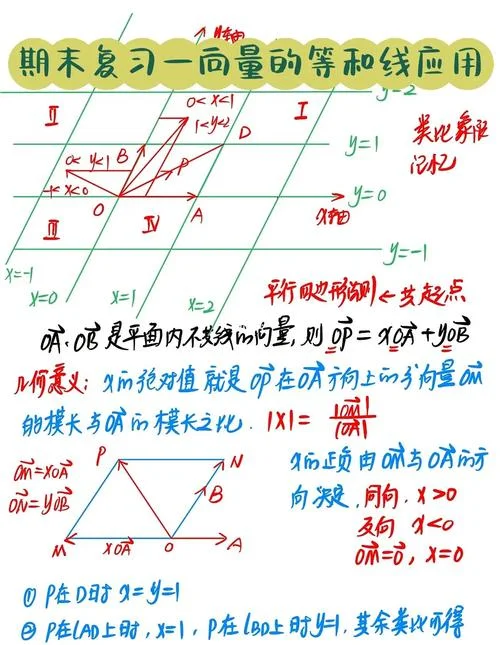 y轴
期末复习一向量的等和线应用
y=2
II
0<x<1
I
1<y<2
类比象限
记忆
D
y=1
0<y<1
B
P
-1<x<0
y=0
O
A
x轴
III
IV
y=-1
x=-1
x=0
x=1
x=2
平行四边形法则←共起点
OA、OB是平面内不共线的向量,则OP=xOA+yOB
几何意义:x的绝对值就是OP在OA方向上的分向量OM
的模长与OA的模长之比.|x|=|OM|/|OA|
OM=xOA
ON=yOB
P
N
B
M
xOA
O
A
x的正负由OM与OA的方
向决定,同向,x>0
反向 x<0
OM=0,x=0
① P在D时x=y=1
② P在lAD上时,x=1,P在lBD上时y=1,其余类比可得